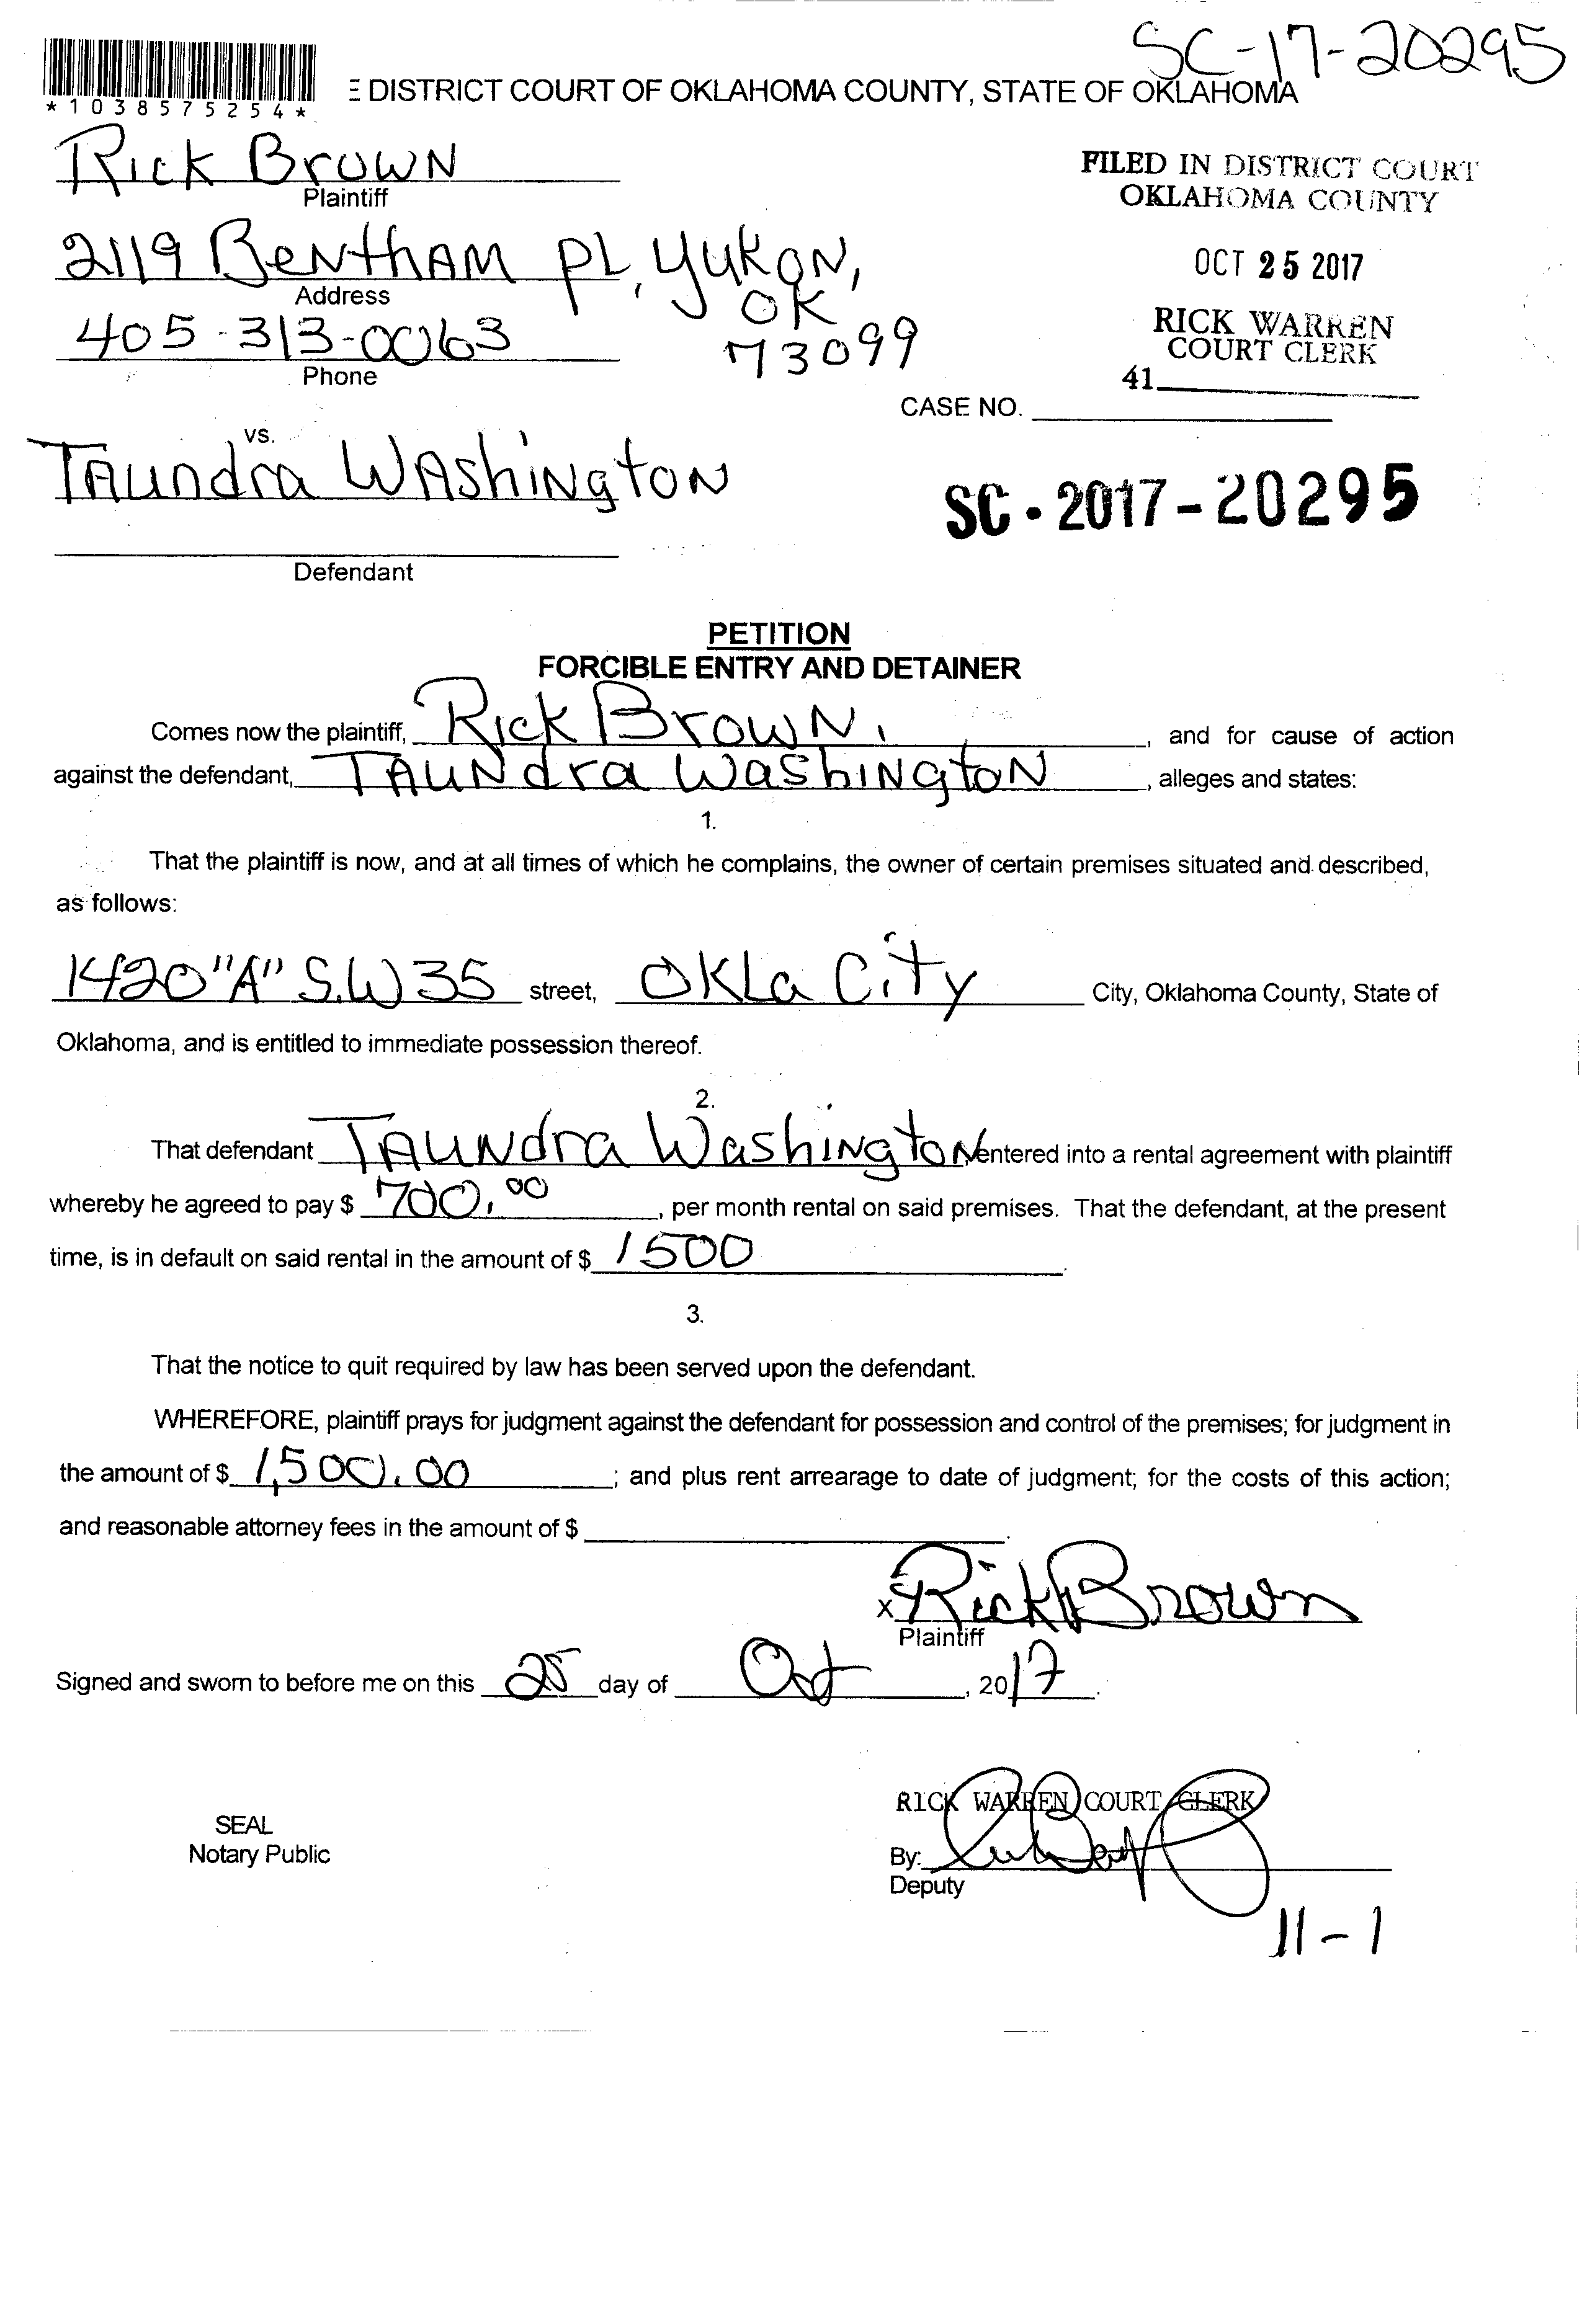 SC-17-20295
*1038575254*
E DISTRICT COURT OF OKLAHOMA COUNTY, STATE OF OKLAHOMA
Rick Brown
Plaintiff
FILED IN DISTRICT COURT
OKLAHOMA COUNTY
2119 Bentham PL, Yukon,
OK
73099
Address
OCT 25 2017
405-313-0063
Phone
RICK WARREN
COURT CLERK
41
CASE NO.
vs.
TAundra WAshington
SC-2017-20295
Defendant
PETITION
FORCIBLE ENTRY AND DETAINER
Comes now the plaintiff, Rick Brown, , and for cause of action
against the defendant, TAUNdra WashINgtoN , alleges and states:
1.
That the plaintiff is now, and at all times of which he complains, the owner of certain premises situated and described,
as follows:
1420 "A" S.W 35 street, Okla City City, Oklahoma County, State of
Oklahoma, and is entitled to immediate possession thereof.
2.
That defendant TAUNdra WashINgtoN entered into a rental agreement with plaintiff
whereby he agreed to pay $ 700.00 , per month rental on said premises. That the defendant, at the present
time, is in default on said rental in the amount of $ 1500 .
3.
That the notice to quit required by law has been served upon the defendant.
WHEREFORE, plaintiff prays for judgment against the defendant for possession and control of the premises; for judgment in
the amount of $ 1,500.00 ; and plus rent arrearage to date of judgment; for the costs of this action;
and reasonable attorney fees in the amount of $ .
X Rick Brown
Plaintiff
Signed and sworn to before me on this 25 day of Oct , 2017 .
RICK WARREN COURT CLERK
SEAL
Notary Public
By:
Deputy
11-1